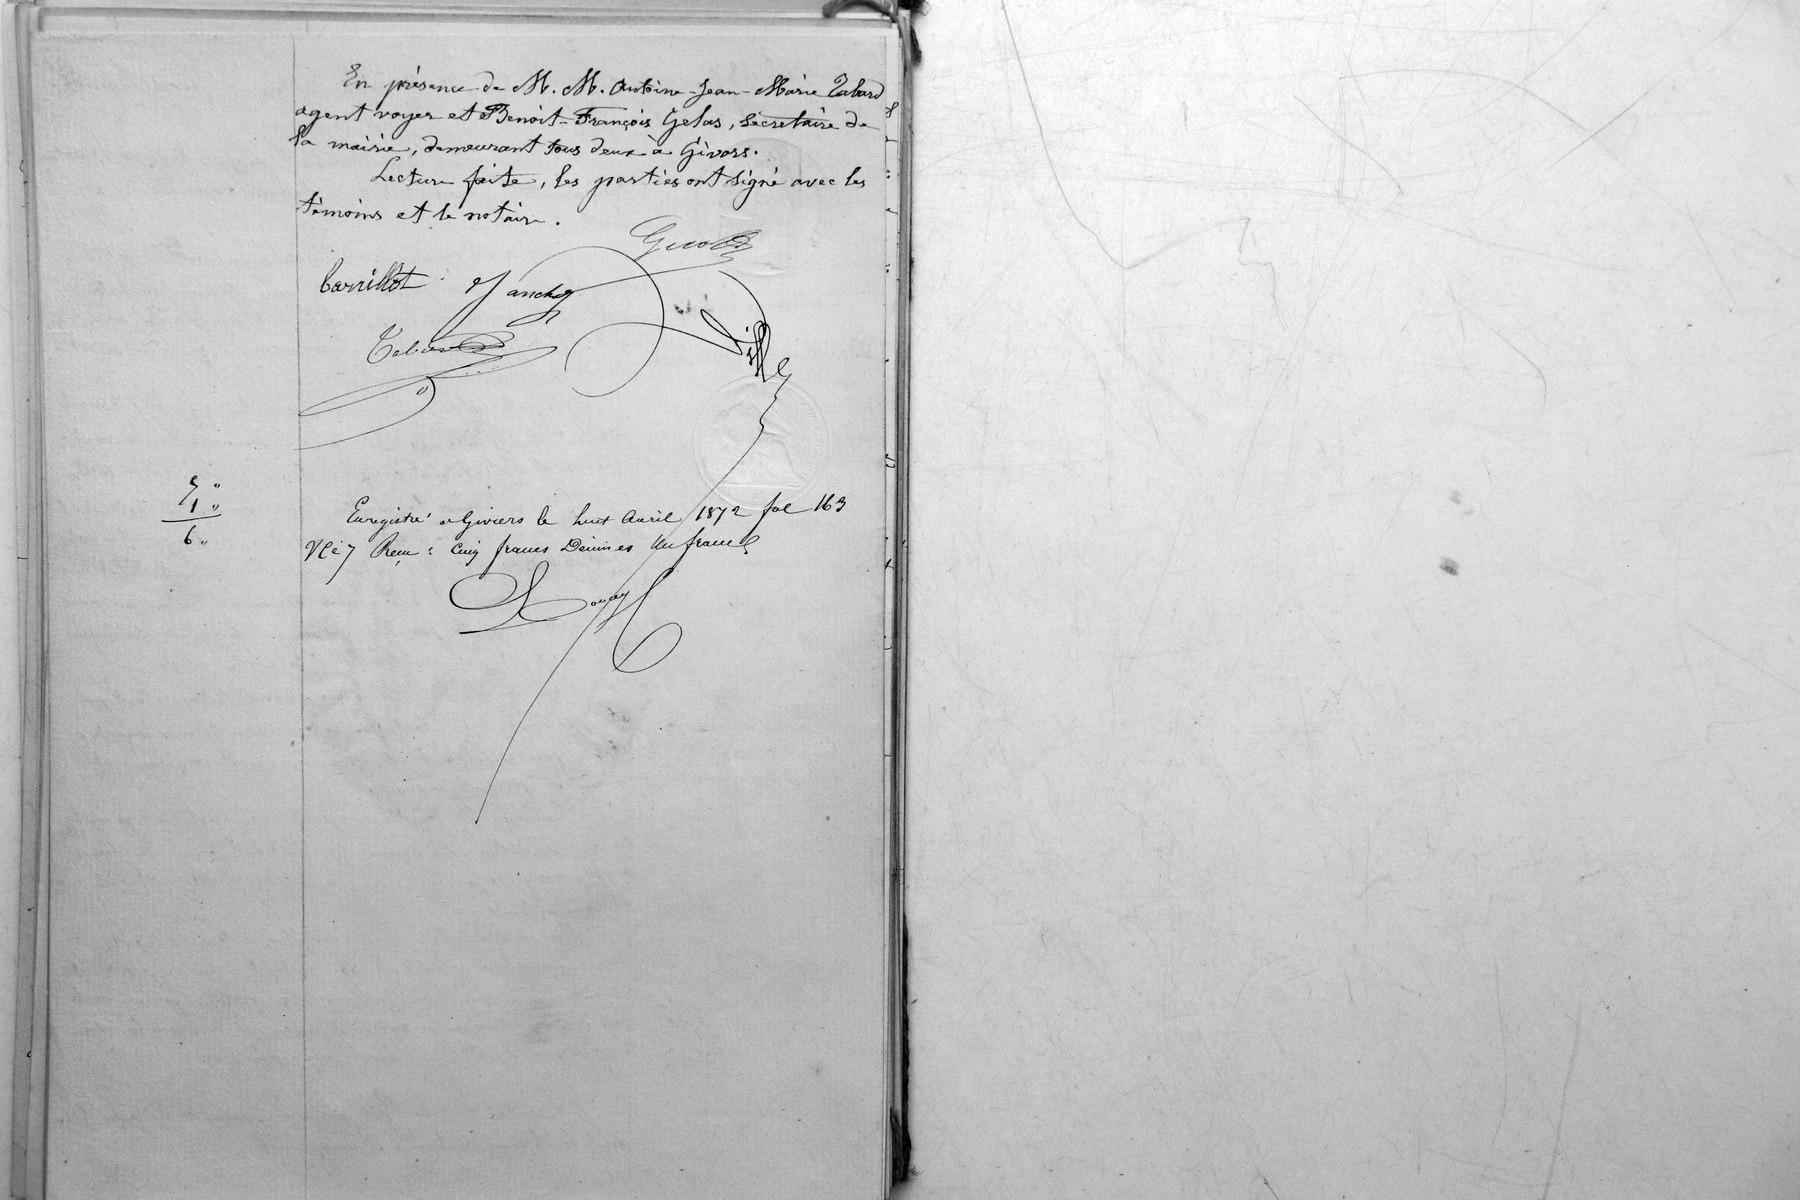 En présence de M. M. Antoine-Jean-Marie Tabard
agent voyer et Benoit-François Gelas, sécretaire de
la mairie, demeurant tous deux à Givors.
Lecture faite, les parties ont signé avec les
témoins et le notaire.
Barrillot
Tabard
5 "
1 "
6 "
Enregistré à Givors le huit Avril 1872 fol 163
Vº C 7 Reçu : Cinq francs Décimes Un franc